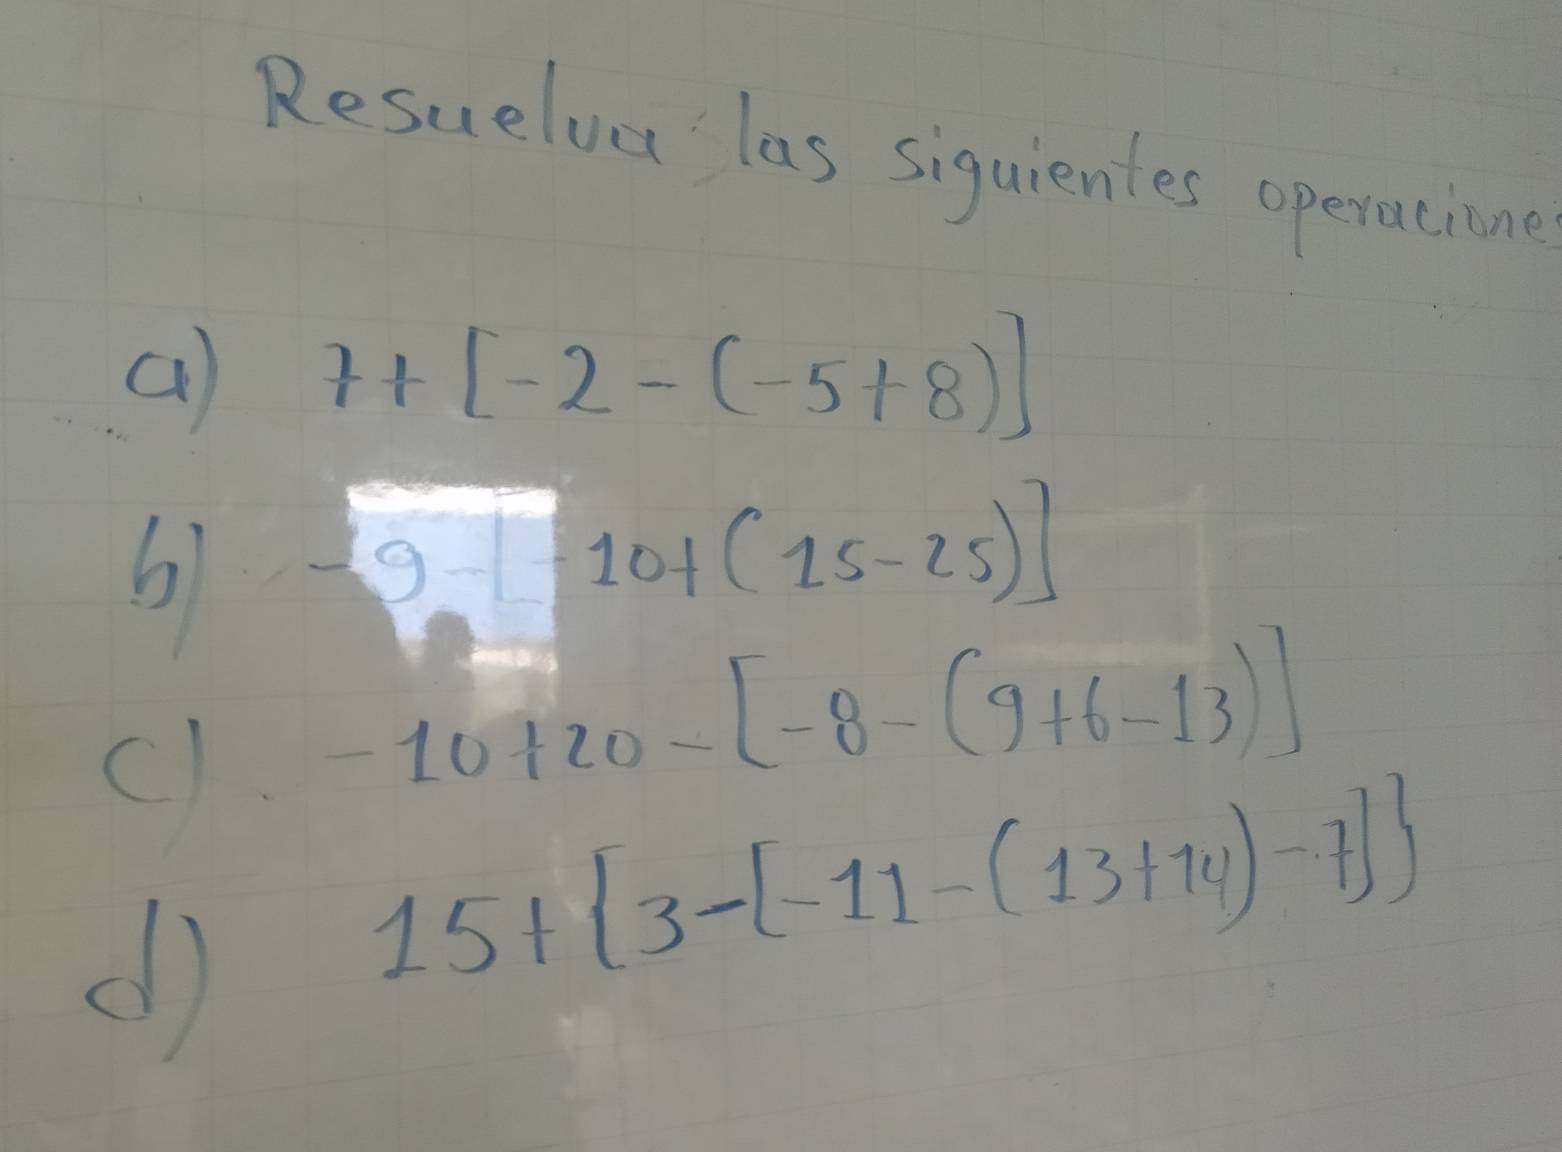 Resuelva las siguientes operaciones
a) 7+[-2-(-5+8)]
b) -9-[-10+(15-25)]
c) -10+20-[-8-(9+6-13)]
d) 15+{3-[-11-(13+14)-7]}